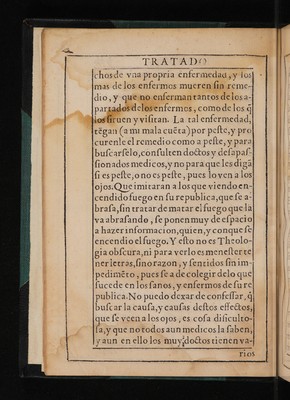 TRATADO
chos de vna propria enfermedad, y los
mas de los enfermos mueren sin reme-
dio, y que no enferman tantos de los a-
partados de los enfermos, como de los q̃
los siruen y visitan. La tal enfermedad,
tẽgan (a mi mala cuẽta) por peste, y pro
curenle el remedio como a peste, y para
buscarselo, consulten doctos y desapas-
sionados medicos, y no para que les digã
si es peste, o no es peste, pues lo ven a los
ojos. Que imitaran a los que viendo en-
cendido fuego en su republica, que se a-
brasa, sin tratar de matar el fuego que la
va abrasando, se ponen muy de espacio
a hazer informacion, quien, y con que se
encendio el fuego. Y esto no es Theolo-
gia obscura, ni para verlo es menester te
ner letras, sino razon, y sentidos sin im-
pedimẽto, pues se a de colegir de lo que
sucede en los sanos, y enfermos de su re
publica. No puedo dexar de confessar, q̃
buscar la causa, y causas destos effectos,
que se veen a los ojos, es cosa dificulto-
sa, y que no todos aun medicos la saben,
y aun en ello los muy doctos tienen va-
rios